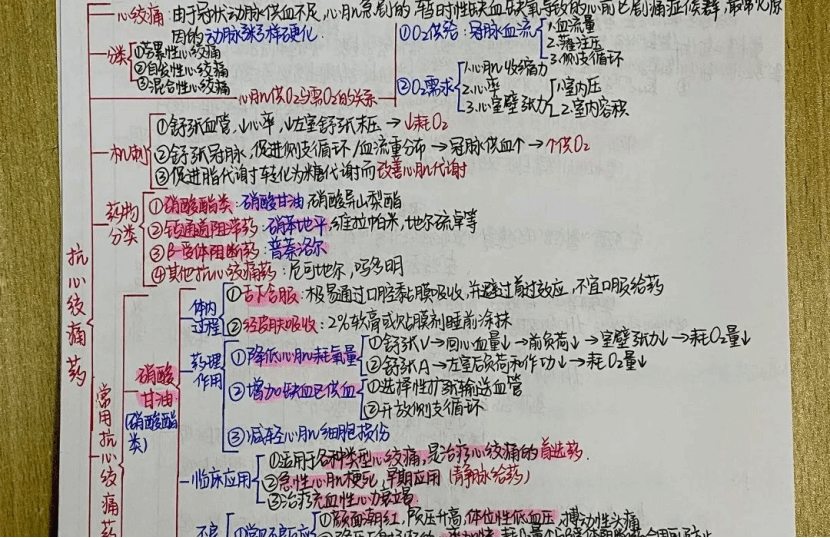 心绞痛：由于冠状动脉供血不足，心肌急剧的、暂时性缺血缺氧导致的心前区剧痛症候群，最常见原
因的动脉粥样硬化.
分类
①劳累性心绞痛
②自发性心绞痛
③混合性心绞痛
心肌供O2与需O2的关系
①O2供给：冠脉血流
1.血流量
2.灌注压
3.侧支循环
②O2需求
1.心肌收缩力
2.心率
3.心室壁张力
1.室内压
2.室内容积
机制
①舒张血管，↓心率，↓左室舒张末压→↓耗O2
②舒张冠脉，促进侧支循环/血流重分布→冠脉供血↑→↑供O2
③促进脂代谢转化为糖代谢而改善心肌代谢
抗心绞痛药
药物分类
①硝酸酯类：硝酸甘油，硝酸异山梨酯
②钙通道阻滞药：硝苯地平，维拉帕米，地尔硫卓等
③β-受体阻断药：普萘洛尔
④其他抗心绞痛药：尼可地尔，吗多明
常用抗心绞痛药
硝酸甘油(硝酸酯类)
体内过程
①舌下含服：极易通过口腔黏膜吸收，并避过首过效应，不宜口服给药
②经皮肤吸收：2%软膏或贴膜剂睡前涂抹
药理作用
①降低心肌耗氧量
①舒张V→回心血量↓→前负荷↓→室壁张力↓→耗O2量↓
②舒张A→左室后负荷和作功↓→耗O2量↓
②增加缺血区供血
①选择性扩张输送血管
②开放侧支循环
③减轻心肌细胞损伤
临床应用
①适用于各种类型心绞痛，是治疗心绞痛的首选药.
②急性心肌梗死，早期应用（静脉给药）
③治疗充血性心力衰竭
不良
①颜面潮红，眼压升高，体位性低血压，搏动性头痛